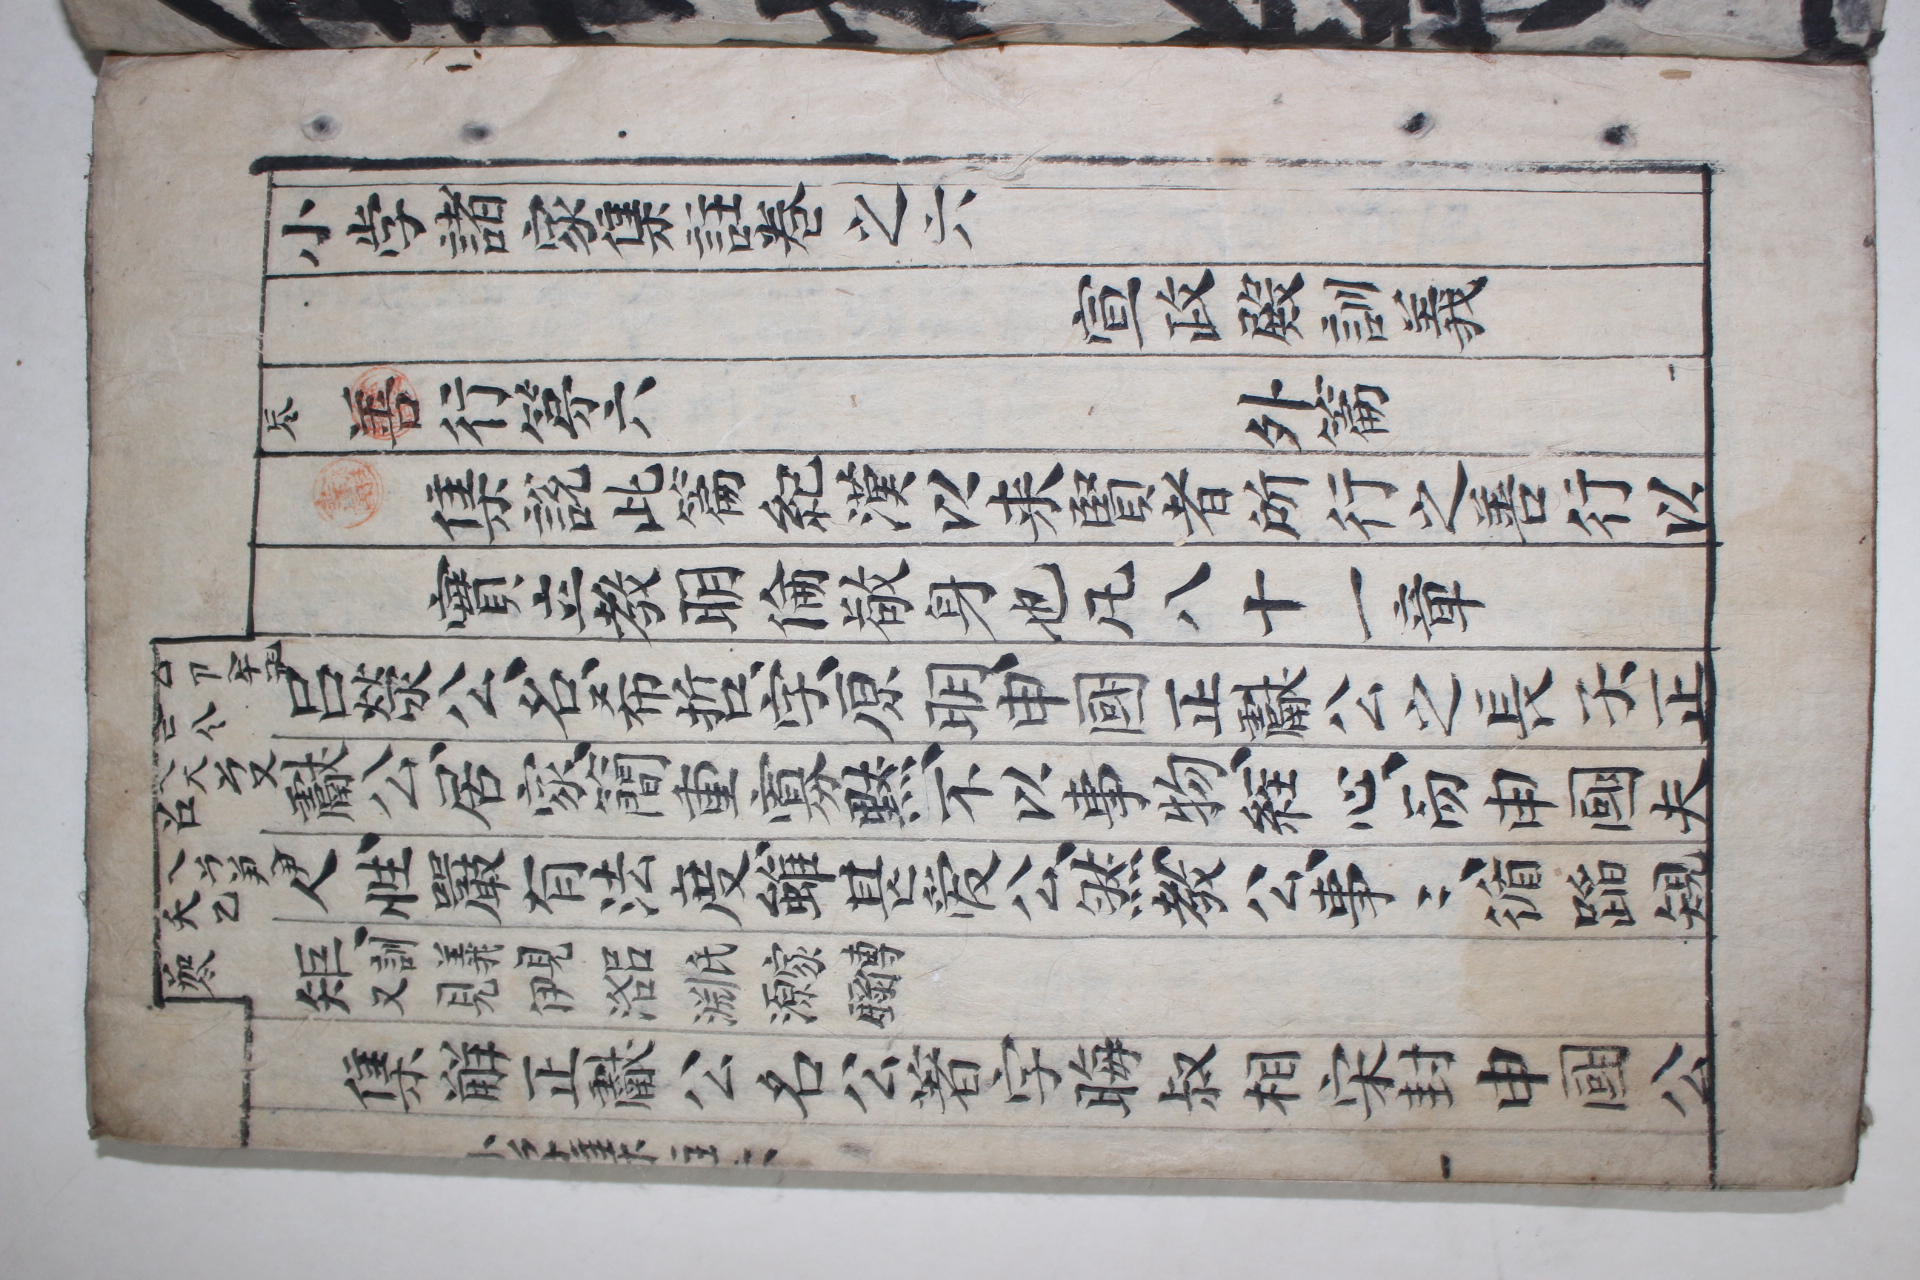 小学諸家集註卷之六
宣政殿訓義
善行第六 外篇
集說此篇紀漢以来賢者所行之善行以
實立教明倫敬身也凡八十一章
呂滎公名希哲字原明申國正獻公之長子正
獻公居家簡重寡默不以事物経心而申國夫
人性嚴有法度雖甚愛公然教公事〻循蹈規
矩 訓義見呂氏家傳 又見伊洛淵源錄
集解正獻公名公著字晦叔相宋封申國公
小学集註六 一